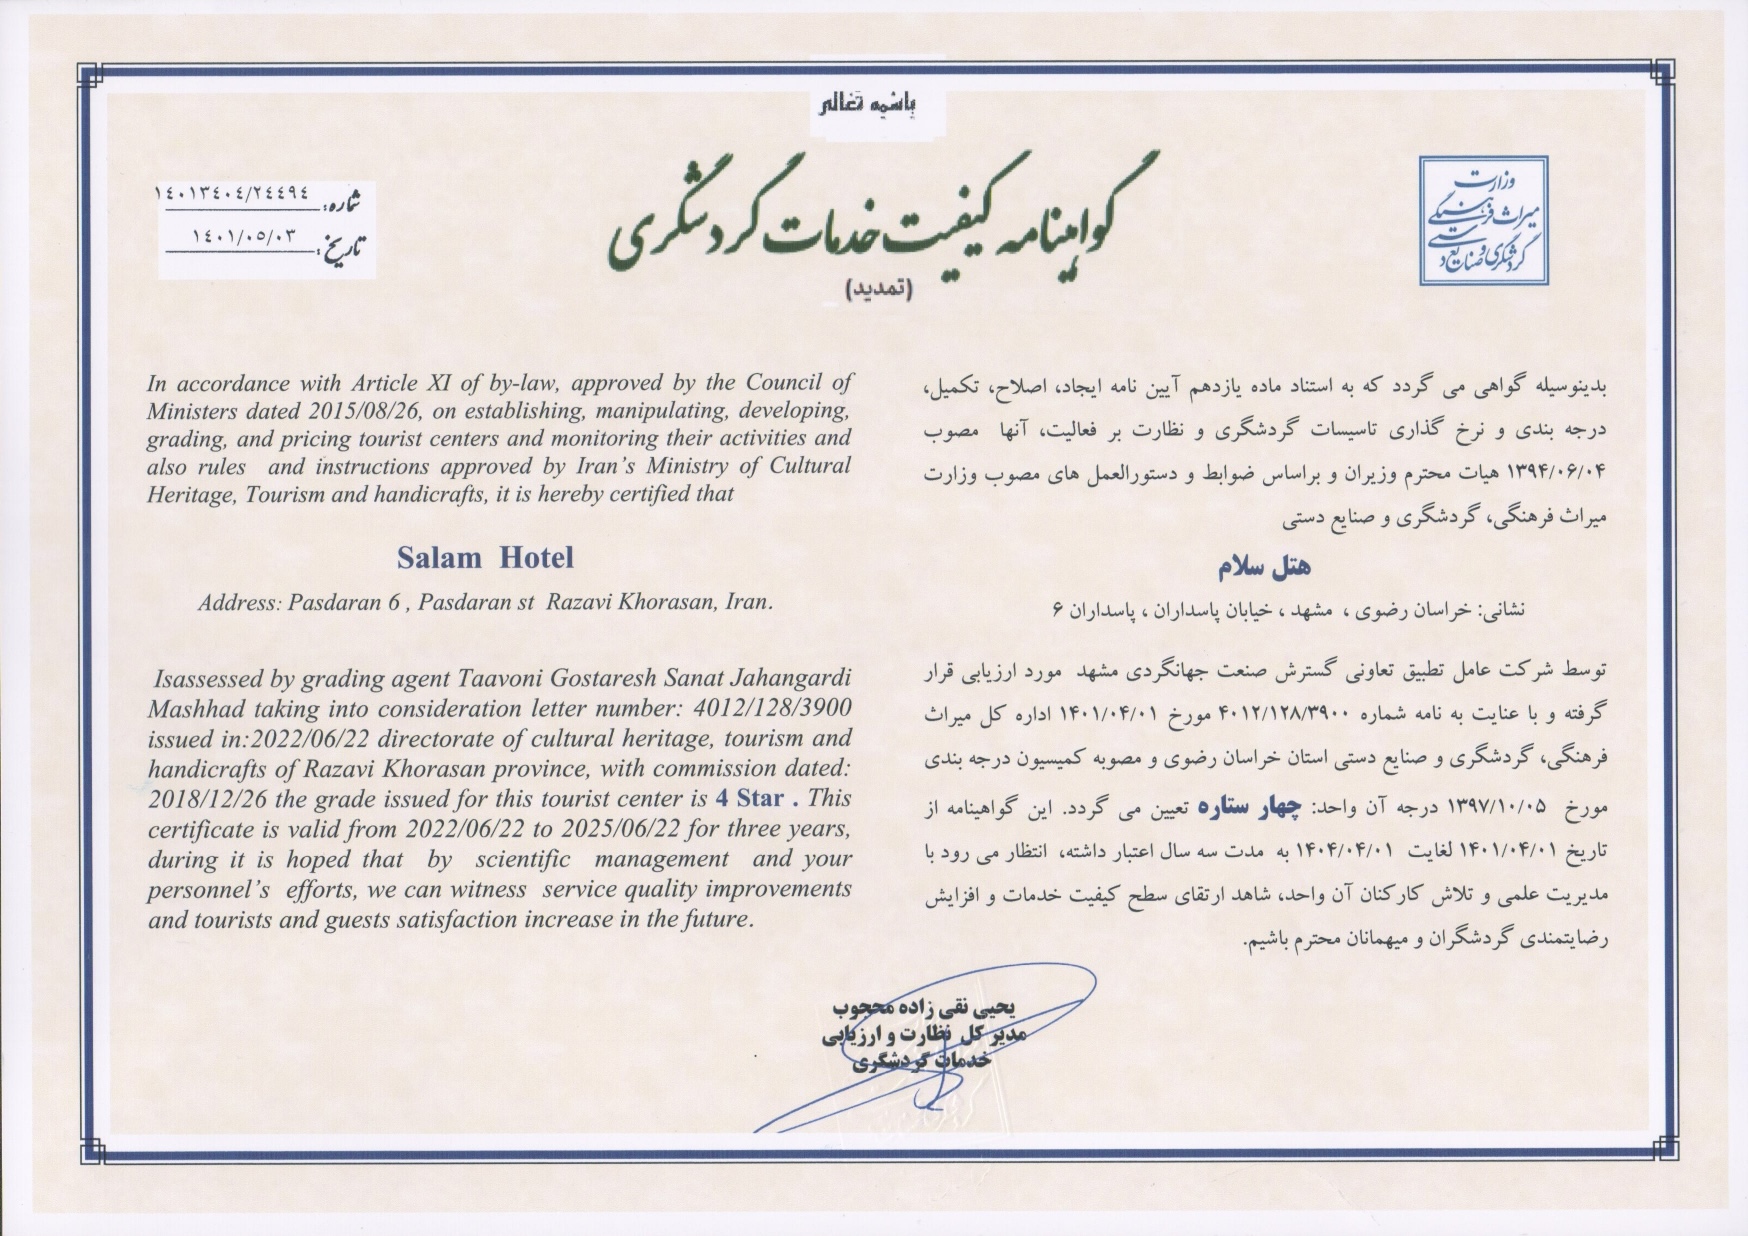 باسمه تعالی
گواهینامه کیفیت خدمات گردشگری
(تمدید)
شماره: ١٤٠١٣٤٠٤/٢٤٤٩٤
تاریخ: ١٤٠١/٠٥/٠٣
وزارت
میراث فرهنگی
گردشگری و صنایع دستی
In accordance with Article XI of by-law, approved by the Council of
Ministers dated 2015/08/26, on establishing, manipulating, developing,
grading, and pricing tourist centers and monitoring their activities and
also rules and instructions approved by Iran's Ministry of Cultural
Heritage, Tourism and handicrafts, it is hereby certified that
Salam Hotel
Address: Pasdaran 6 , Pasdaran st Razavi Khorasan, Iran.
Isassessed by grading agent Taavoni Gostaresh Sanat Jahangardi
Mashhad taking into consideration letter number: 4012/128/3900
issued in:2022/06/22 directorate of cultural heritage, tourism and
handicrafts of Razavi Khorasan province, with commission dated:
2018/12/26 the grade issued for this tourist center is 4 Star . This
certificate is valid from 2022/06/22 to 2025/06/22 for three years,
during it is hoped that by scientific management and your
personnel's efforts, we can witness service quality improvements
and tourists and guests satisfaction increase in the future.
بدینوسیله گواهی می گردد که به استناد ماده یازدهم آیین نامه ایجاد، اصلاح، تکمیل،
درجه بندی و نرخ گذاری تاسیسات گردشگری و نظارت بر فعالیت، آنها مصوب
۱۳۹۴/۰۶/۰۴ هیات محترم وزیران و براساس ضوابط و دستورالعمل های مصوب وزارت
میراث فرهنگی، گردشگری و صنایع دستی
هتل سلام
نشانی: خراسان رضوی ، مشهد ، خیابان پاسداران ، پاسداران ۶
توسط شرکت عامل تطبیق تعاونی گسترش صنعت جهانگردی مشهد مورد ارزیابی قرار
گرفته و با عنایت به نامه شماره ۴۰۱۲/۱۲۸/۳۹۰۰ مورخ ۱۴۰۱/۰۴/۰۱ اداره کل میراث
فرهنگی، گردشگری و صنایع دستی استان خراسان رضوی و مصوبه کمیسیون درجه بندی
مورخ ۱۳۹۷/۱۰/۰۵ درجه آن واحد: چهار ستاره تعیین می گردد. این گواهینامه از
تاریخ ۱۴۰۱/۰۴/۰۱ لغایت ۱۴۰۴/۰۴/۰۱ به مدت سه سال اعتبار داشته، انتظار می رود با
مدیریت علمی و تلاش کارکنان آن واحد، شاهد ارتقای سطح کیفیت خدمات و افزایش
رضایتمندی گردشگران و میهمانان محترم باشیم.
یحیی نقی زاده محجوب
مدیر کل نظارت و ارزیابی
خدمات گردشگری